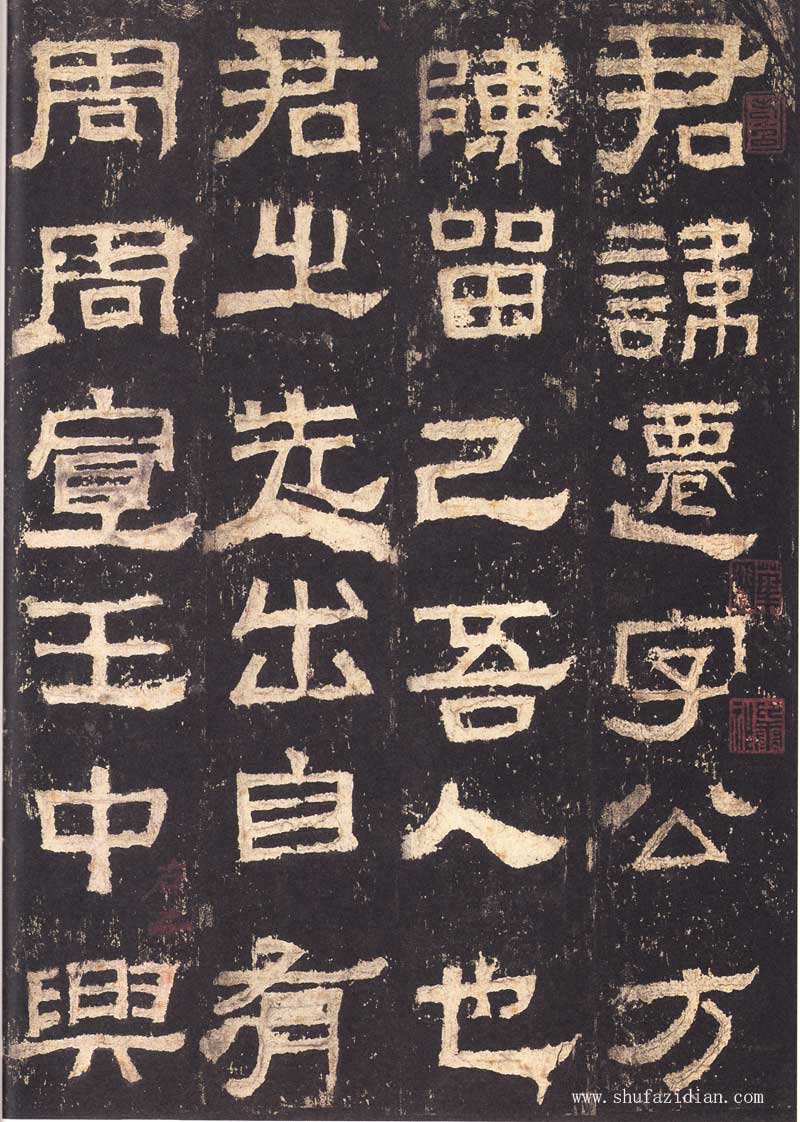 君諱遷字公方
陳留己吾人也
君之先出自有
周周宣王中興
www.shufazidian.com